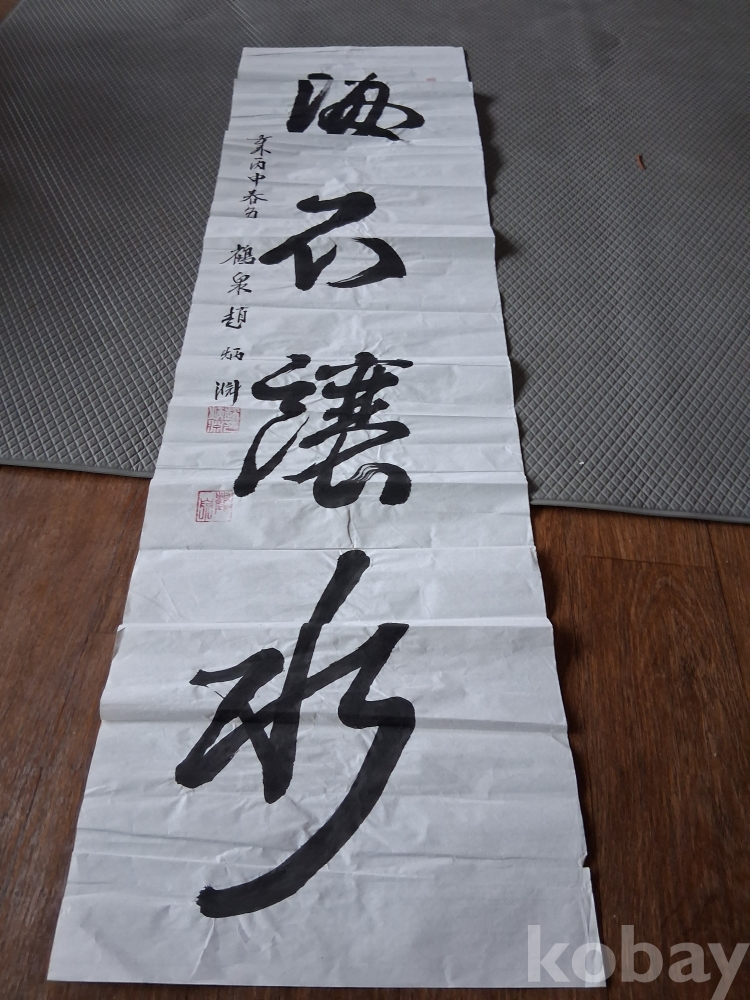 海不讓水
丙申春
鶴泉 趙炳淵
kobay